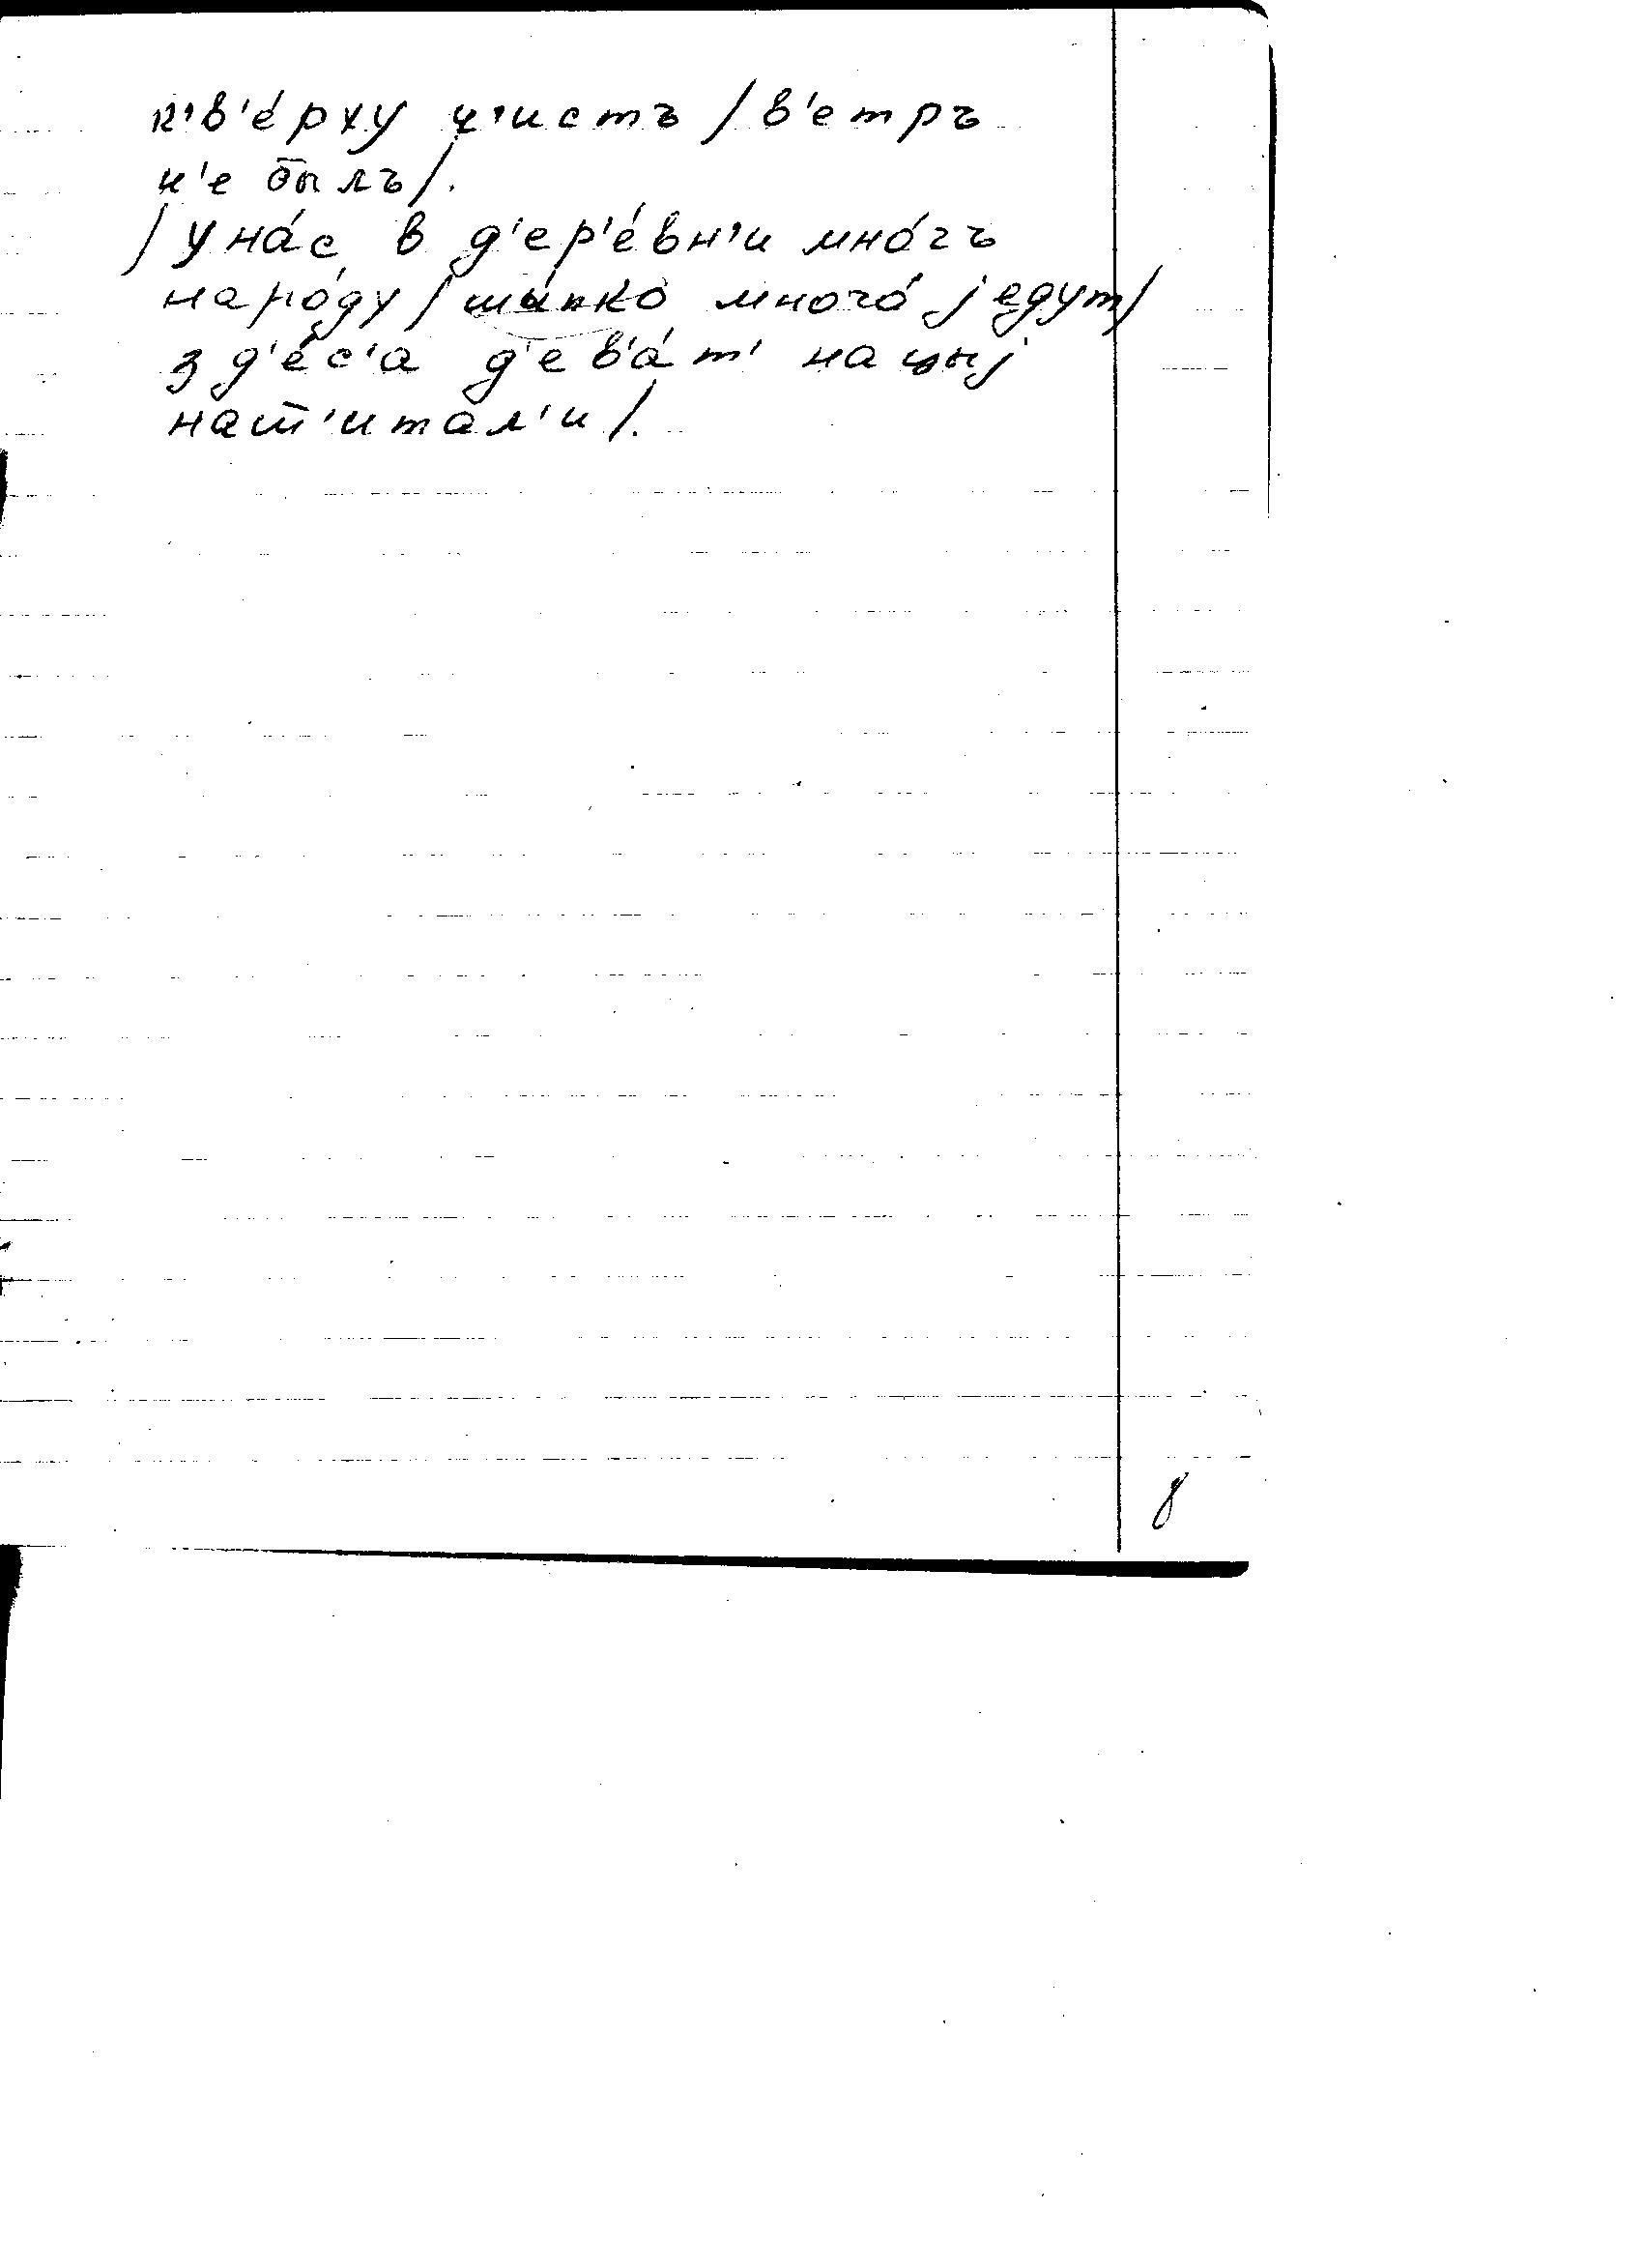 к'в'е́рху ч'истъ / в'етръ
н'е былъ /.
/ у на́с в д'ер'е́вн'и мно́гъ
наро́ду / шы́пко много́ jедут /
зд'е́с'а д'ев'а́т' нацыj
наш'итал'и /.
8